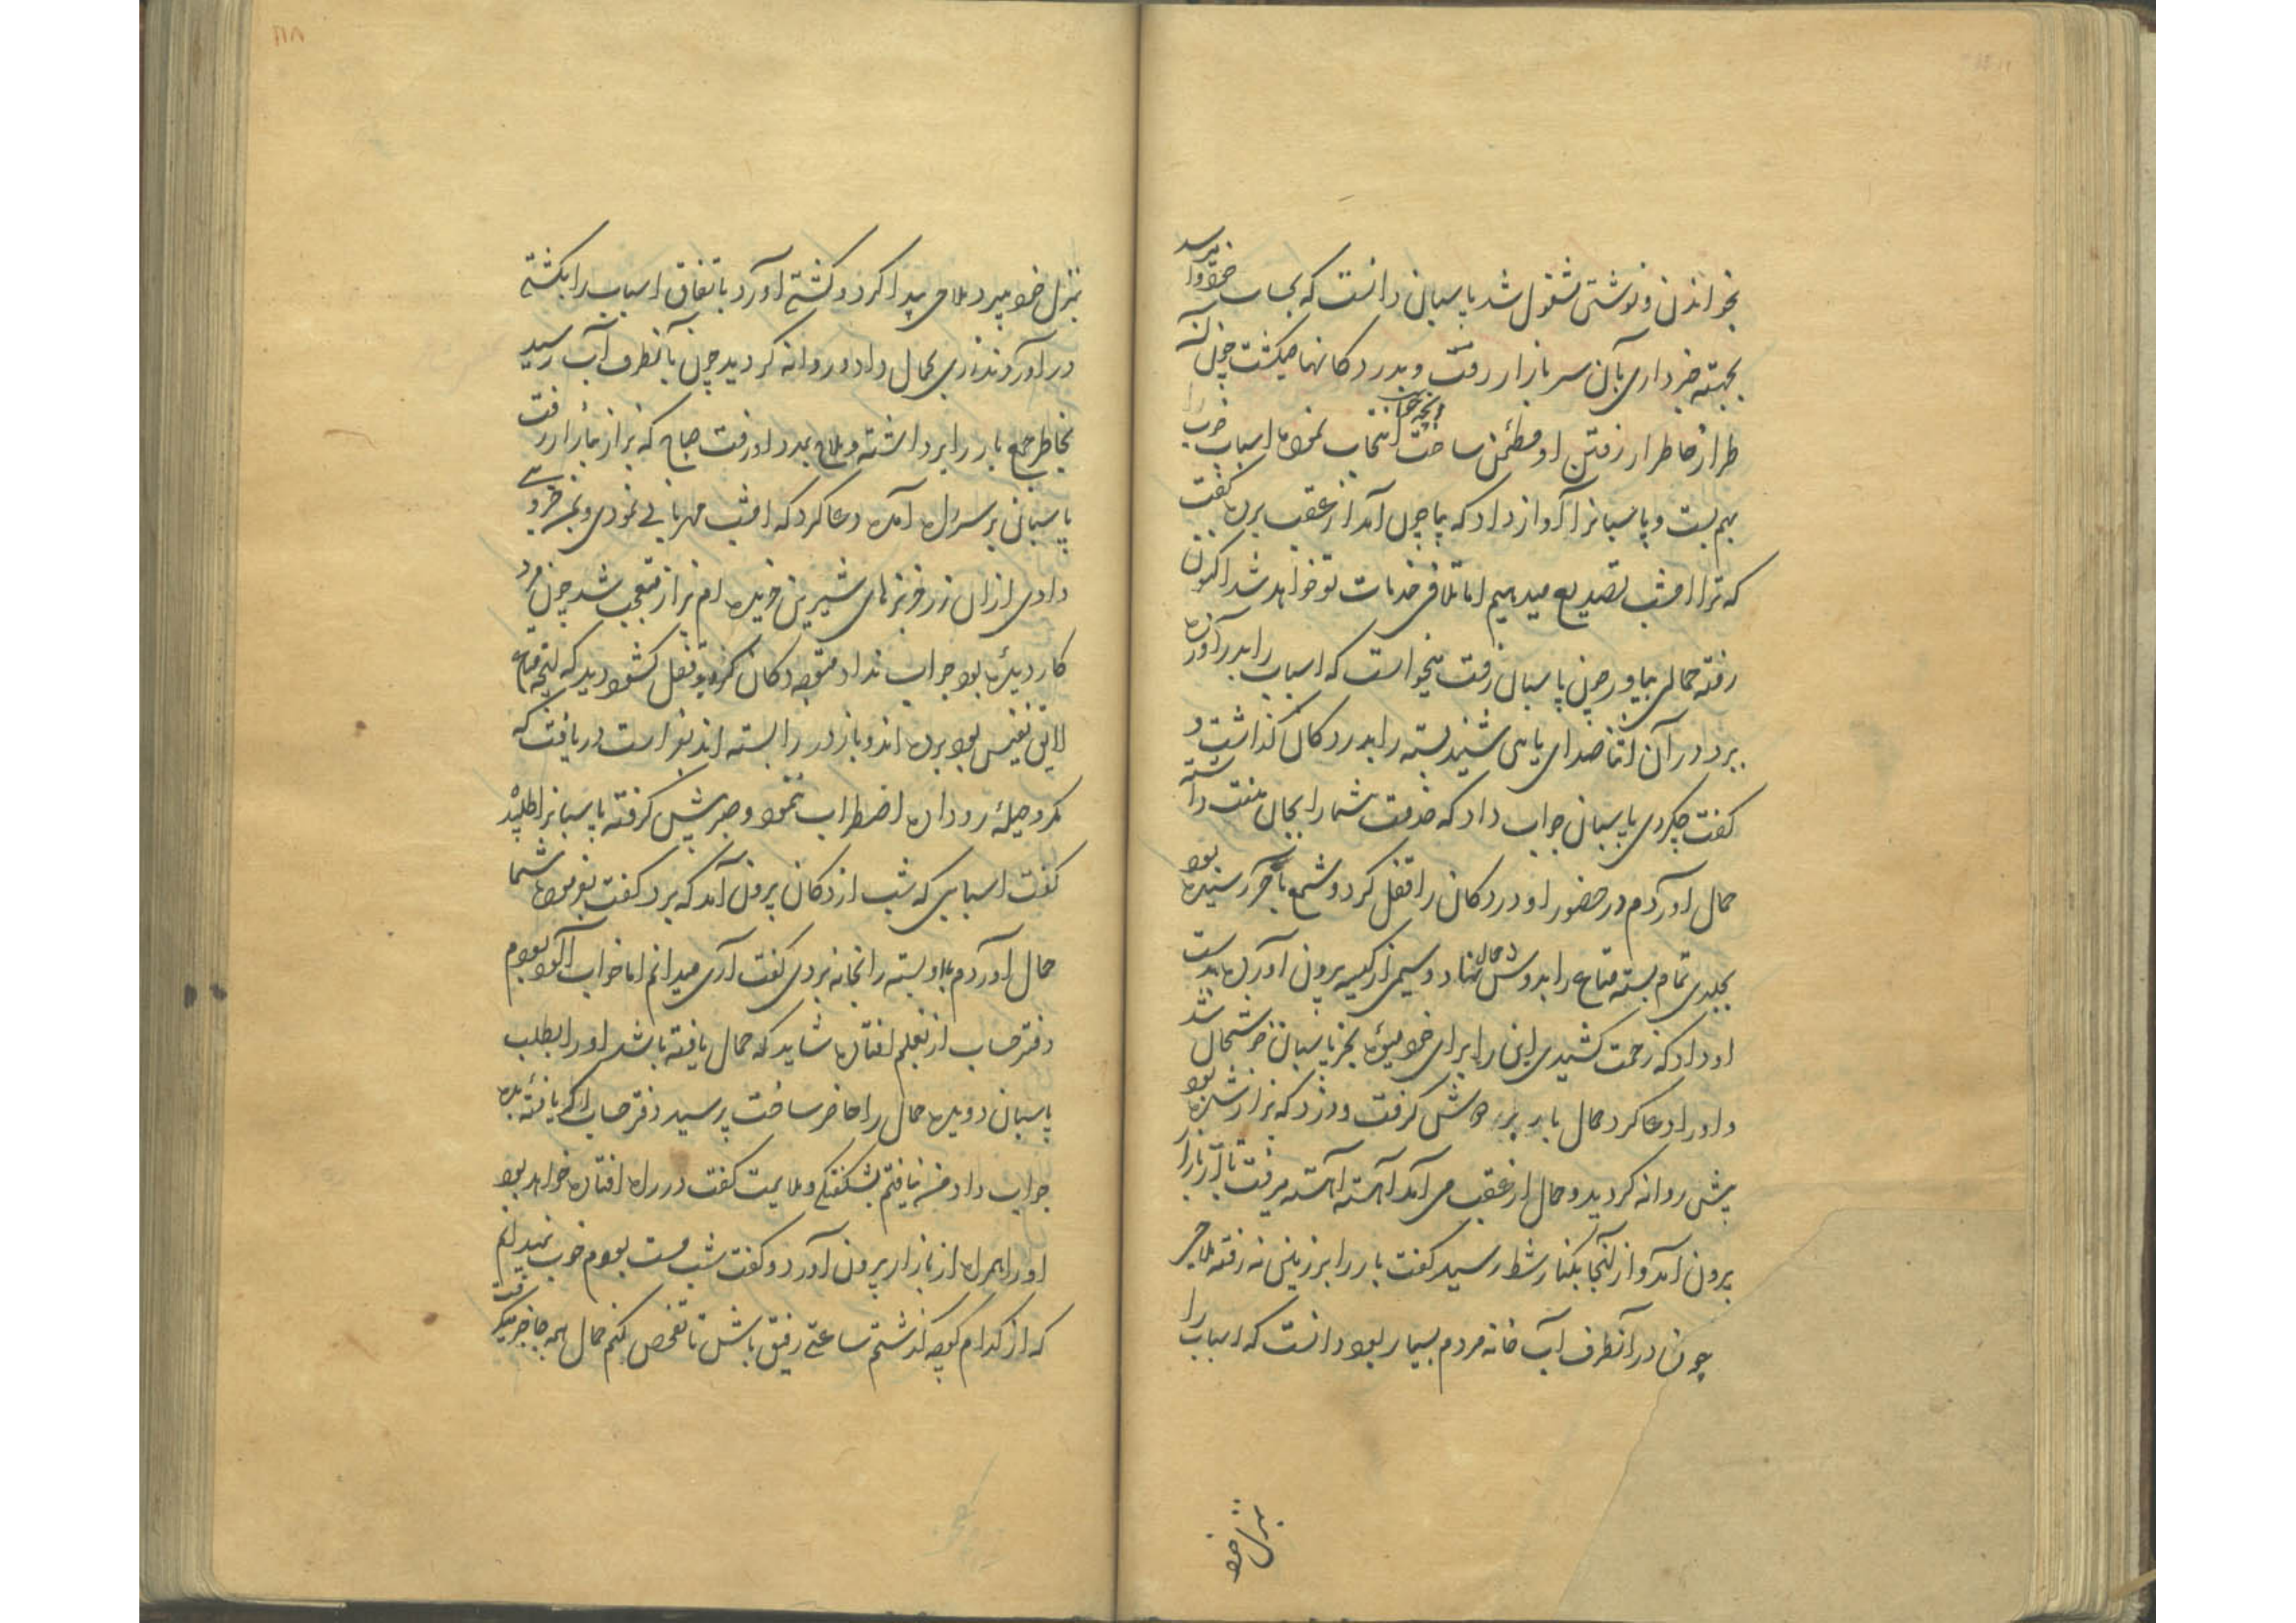 بخواندن و نوشتن مشغول شد پاسبان دانست که بحساب خود وا میرسد
بجهته خبرداری بآن سر بازار رفت و بدر دکانها میکشت چون آن
طرار خاطر از رفتن او مطمئن ساخت آنچه خواست انتخاب نموده اسباب خوب را
بهم بست و پاسبانرا آواز داد که بیا چون آمد از عقب پرده گفت
که ترا امشب تصدیع میدهیم اما تلافی خدمات تو خواهد شد اکنون
رفته حمالی بیاور چون پاسبان رفت میخواست که اسباب را بدر آورده
ببرد در آن اثنا صدای پای شنید بسته را بدر دکان گذاشت و
گفت چکردی پاسبان جواب داد که خدمت شما را بجان منت داشته
حمال آوردم در حضور او در دکان را قفل کرد و شمع بآخر رسیده بود
بجلدی تمام بسته متاع را بدوش حمال نهاد و سیمی از کیسه برون آورده بدست
او داد که زحمت کشیدی این را برای خود میوه بخر پاسبان خوشحال شد
و او را دعا کرد حمال بار بر دوش گرفت و دزد که بزاز شده بود
پیش روانه گردید و حمال از عقب می آمد آهسته آهسته میرفت تا از بازار
برون آمد و از آنجا بکنار شط رسید گفت بار را بر زمین نه رفته ملاحی
چون در آنطرف آب خانه مردم بسیار بود دانست که اسباب را
بمنزل خود
بمنزل خود میبرد ملاحی پیدا کرد و کشتی آورد باتفاق اسباب را بکشتی
در آوردند زری بحمال داد و روانه گردید چون بآنطرف آب رسید
بخاطر جمع بار را برداشته و ملاح بمدد او رفت صباح که بزاز ببازار رفت
پاسبان بر سر راه آمده دعا کرد که امشب مهربانی نمودی و زر خوبی
دادی از آن زر خربزهای شیرین خریده ام بزاز متعجب شد چون مرد
کار دیده بود جواب نداد متوجه دکان گردید قفل گشود دید که آنچه متاع
لایق نفیس بود برده اند و باز در را بسته اند بفراست دریافت که
مکر و حیله رو داده اضطراب ننمود و صبر پیش گرفته پاسبانرا طلبید
گفت اسبابی که شب از دکان برون آمد که برد گفت بفرموده شما
حمال آوردم بار بسته را بخانه بردی گفت آری میدانم اما خواب آلود بودم
دفتر حساب از بغلم افتاده شاید که حمال یافته باشد او را بطلب
پاسبان دویده حمال را حاضر ساخت پرسید دفتر حساب اگر یافته بده
جواب داد من نیافتم بشکفتگی و ملایمت گفت در راه افتاده خواهد بود
او را همراه از بازار برون آورد و گفت شب مست بودم خوب نمیدانم
که از کدام کوچه گذشتم ساعتی رفیق باش تا تفحص کنم حمال همه جا خبر میگرفت